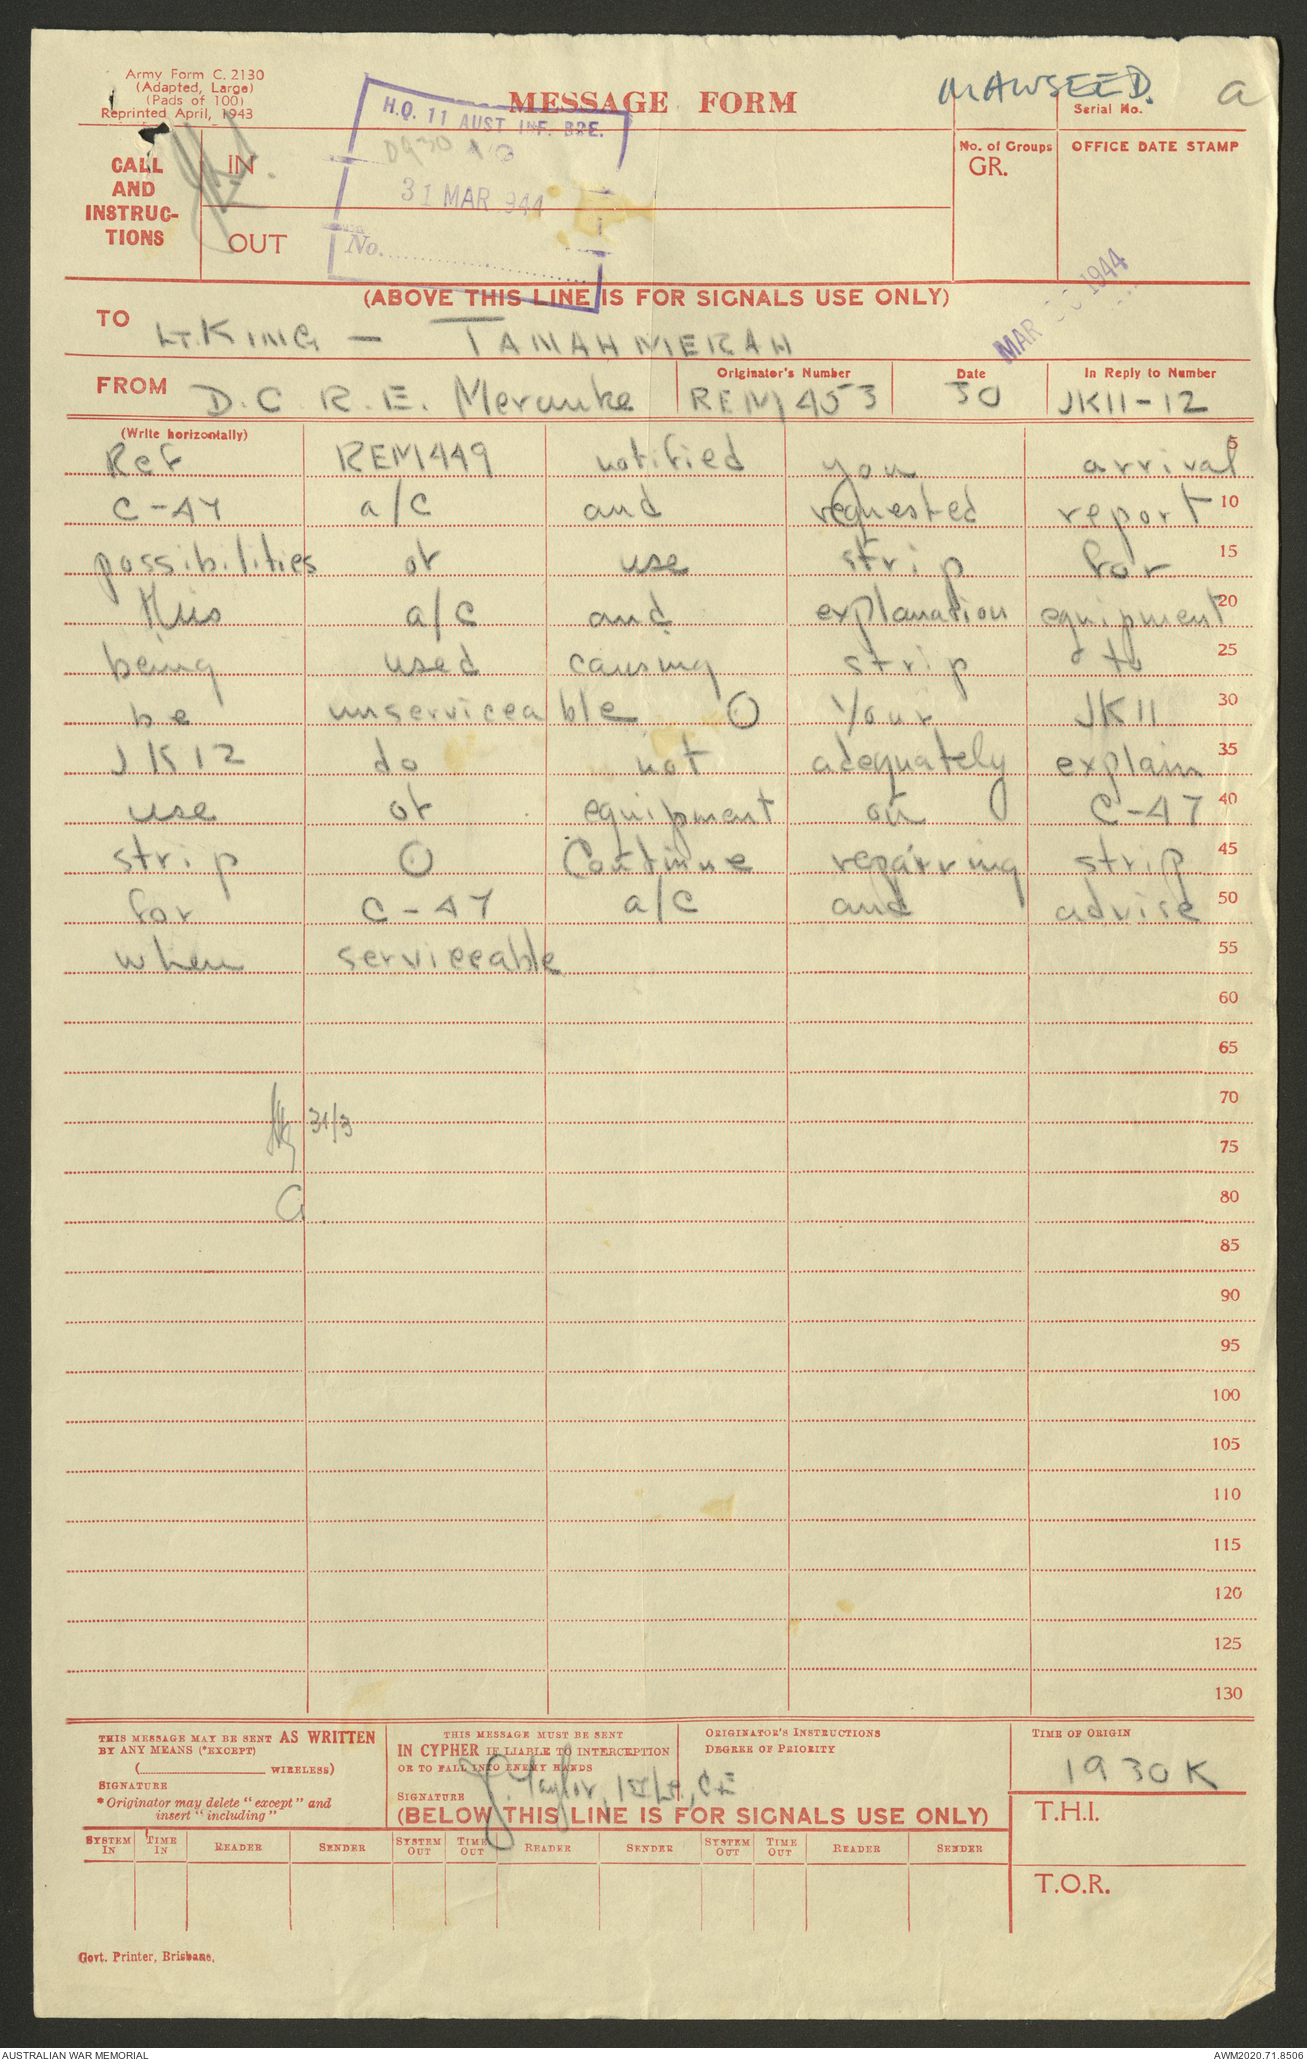 Army Form C. 2130
(Adapted, Large)
(Pads of 100)
Reprinted April, 1943
MESSAGE FORM
MAWSEED.
Serial No.
a
H.Q. 11 AUST INF. BDE.
0930
31 MAR 944
No.
CALL
AND
INSTRUC-
TIONS
IN
OUT
No. of Groups
GR.
OFFICE DATE STAMP
MAR 30 1944
(ABOVE THIS LINE IS FOR SIGNALS USE ONLY)
TO LT. KING — TANAHMERAH
FROM D.C.R.E. Merauke
Originator's Number
REM 453
Date
30
In Reply to Number
JK11-12
(Write horizontally)
Ref REM449 notified you arrival 5
C-47 a/c and requested report 10
possibilities of use strip for 15
this a/c and explanation equipment 20
being used causing strip to 25
be unserviceable O Your JK11 30
JK12 do not adequately explain 35
use of equipment on C-47 40
strip O Continue repairing strip 45
for C-47 a/c and advise 50
when serviceable 55
60
65
70
31/3
75
G. 80
85
90
95
100
105
110
115
120
125
130
THIS MESSAGE MAY BE SENT AS WRITTEN
BY ANY MEANS (*EXCEPT)
(............ WIRELESS)
SIGNATURE
* Originator may delete "except" and
insert "including"
THIS MESSAGE MUST BE SENT
IN CYPHER IF LIABLE TO INTERCEPTION
OR TO FALL INTO ENEMY HANDS
SIGNATURE J. Taylor, 1st/Lt, CE
ORIGINATOR'S INSTRUCTIONS
DEGREE OF PRIORITY
TIME OF ORIGIN
1930K
(BELOW THIS LINE IS FOR SIGNALS USE ONLY)
T.H.I.
SYSTEM IN TIME IN READER SENDER SYSTEM OUT TIME OUT READER SENDER SYSTEM OUT TIME OUT READER SENDER
T.O.R.
Govt. Printer, Brisbane,
AUSTRALIAN WAR MEMORIAL
AWM2020.71.8506